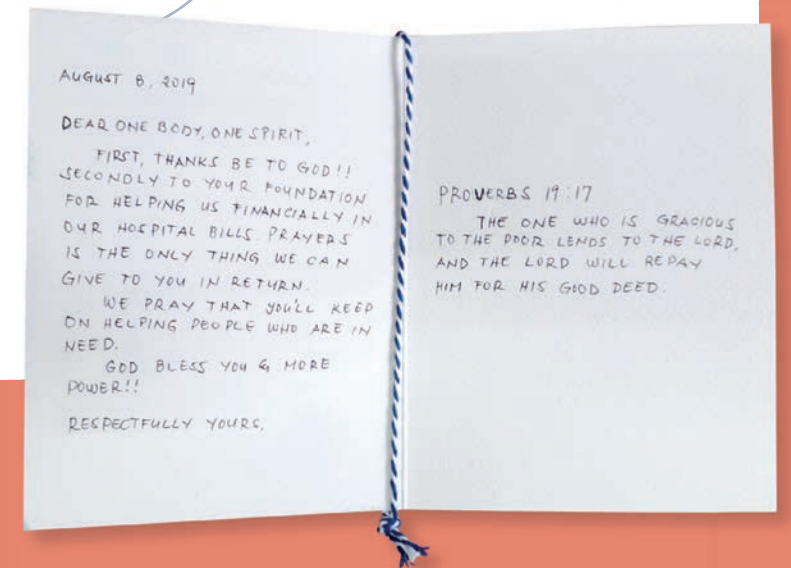 AUGUST 8, 2019
DEAR ONE BODY, ONE SPIRIT,
FIRST, THANKS BE TO GOD!!
SECONDLY TO YOUR FOUNDATION
FOR HELPING US FINANCIALLY IN
OUR HOSPITAL BILLS. PRAYERS
IS THE ONLY THING WE CAN
GIVE TO YOU IN RETURN.
WE PRAY THAT YOU'LL KEEP
ON HELPING PEOPLE WHO ARE IN
NEED.
GOD BLESS YOU & MORE
POWER!!
RESPECTFULLY YOURS,
PROVERBS 19:17
THE ONE WHO IS GRACIOUS
TO THE POOR LENDS TO THE LORD,
AND THE LORD WILL REPAY
HIM FOR HIS GOOD DEED.